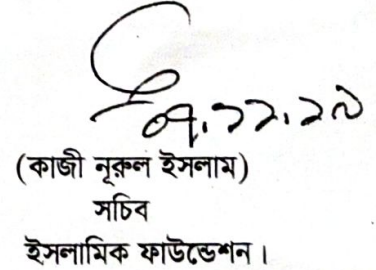 ০৭.১১.১৯
(কাজী নূরুল ইসলাম)
সচিব
ইসলামিক ফাউন্ডেশন।